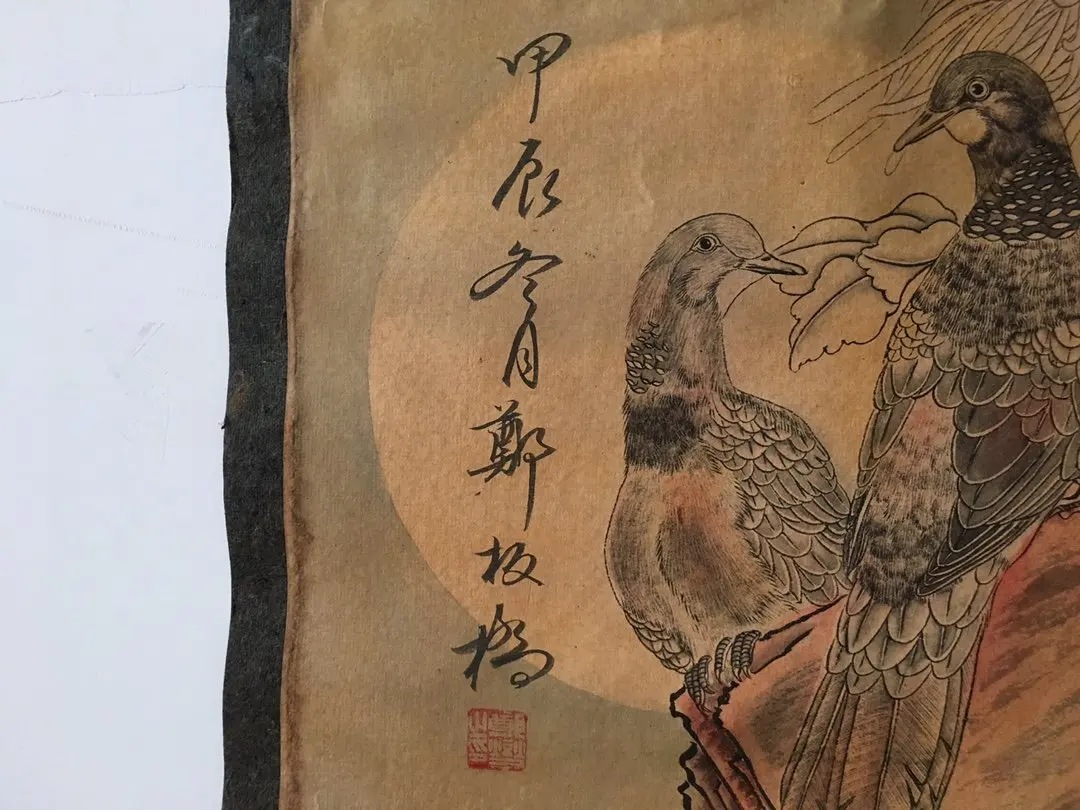 甲辰冬月鄭板橋